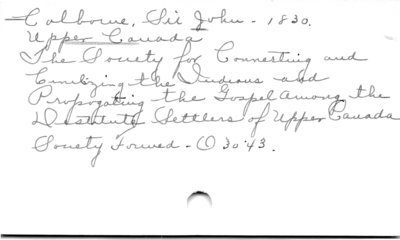 Colborne, Sir John - 1830.
Upper Canada
The Society for Converting and
Civilizing the Indians and
Propogating the Gospel among the
Destitute Settlers of Upper Canada
Society Formed - O 30'43.